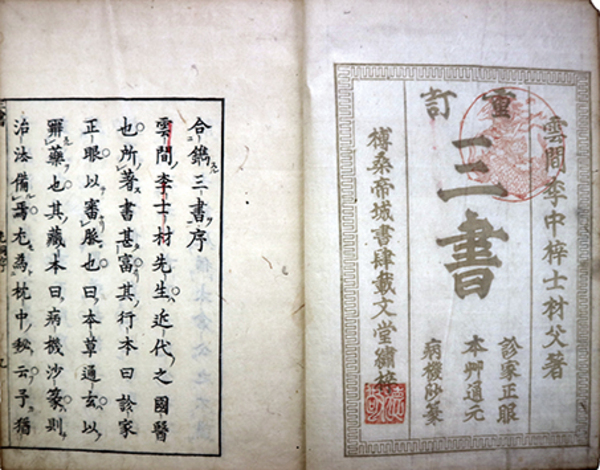 雲間李中梓士材父著
重訂
三書
診家正眼
本艸通元
病機沙篆
榑桑帝城書肆載文堂繡梓
合鐫三書序
雲間李士材先生近代之國醫
也所著書甚富其行本曰診家
正眼以審脈也曰本草通玄以
藥也其藏本曰病機沙篆則
治法備焉尤為枕中秘云予猶